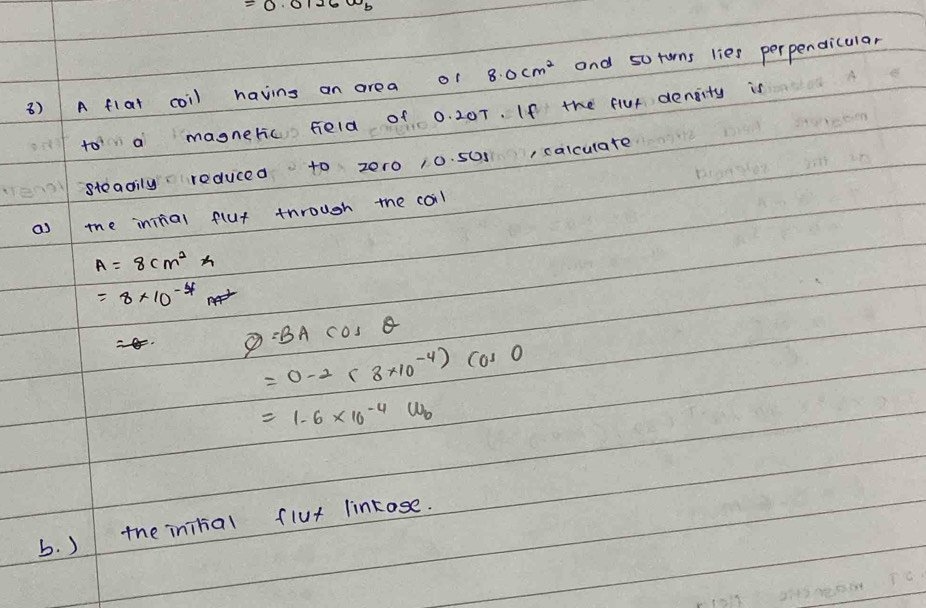 = 0.0126 Wb
8) A flat coil having an area of 8.0cm² and 50 turns lies perpendicular
to a magnetic field of 0.20T. If the flux density is
steadily reduced to zero , 0.50s , calculate
a) the initial flux through the coil
A = 8cm²
= 8×10⁻⁴ m²
Ø=BA cos θ
= 0.2 (8×10⁻⁴) cos 0
= 1.6 × 10⁻⁴ Wb
b.) the initial flux linkage.